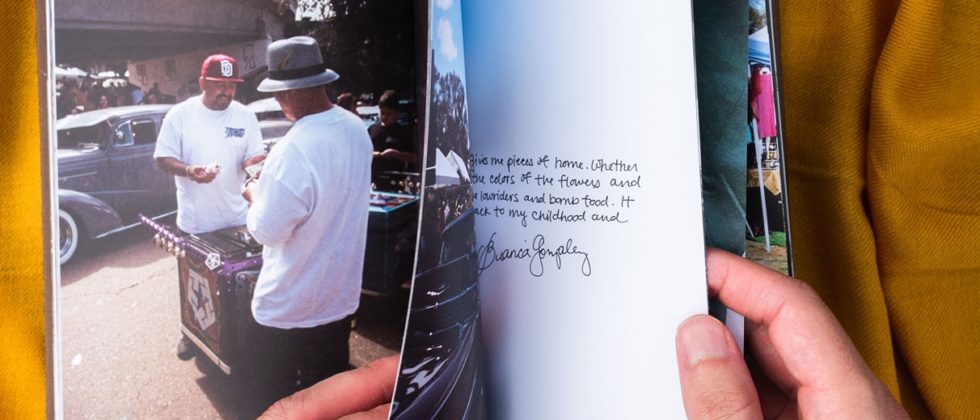 gives me pieces of home. Whether
the colors of the flowers and
e lowriders and bomb food. It
ack to my childhood and
Bianca Gonzalez
SD